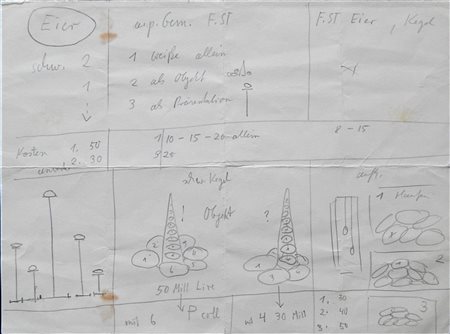 Eier
F. ST
F. ST Eier, Kegel
schw. 2
1
1 weiße allein
2 als Objekt
3 als Präsentation
Kosten 1. 50
2. 30
1 10 - 15 - 20 allein
25
8 - 15
Kegel
! Objekt ?
1 Haufen
2
3
50 Mill Lire
mit 6
P coll
4 30 Mill
1. 30
2. 40
3. 50